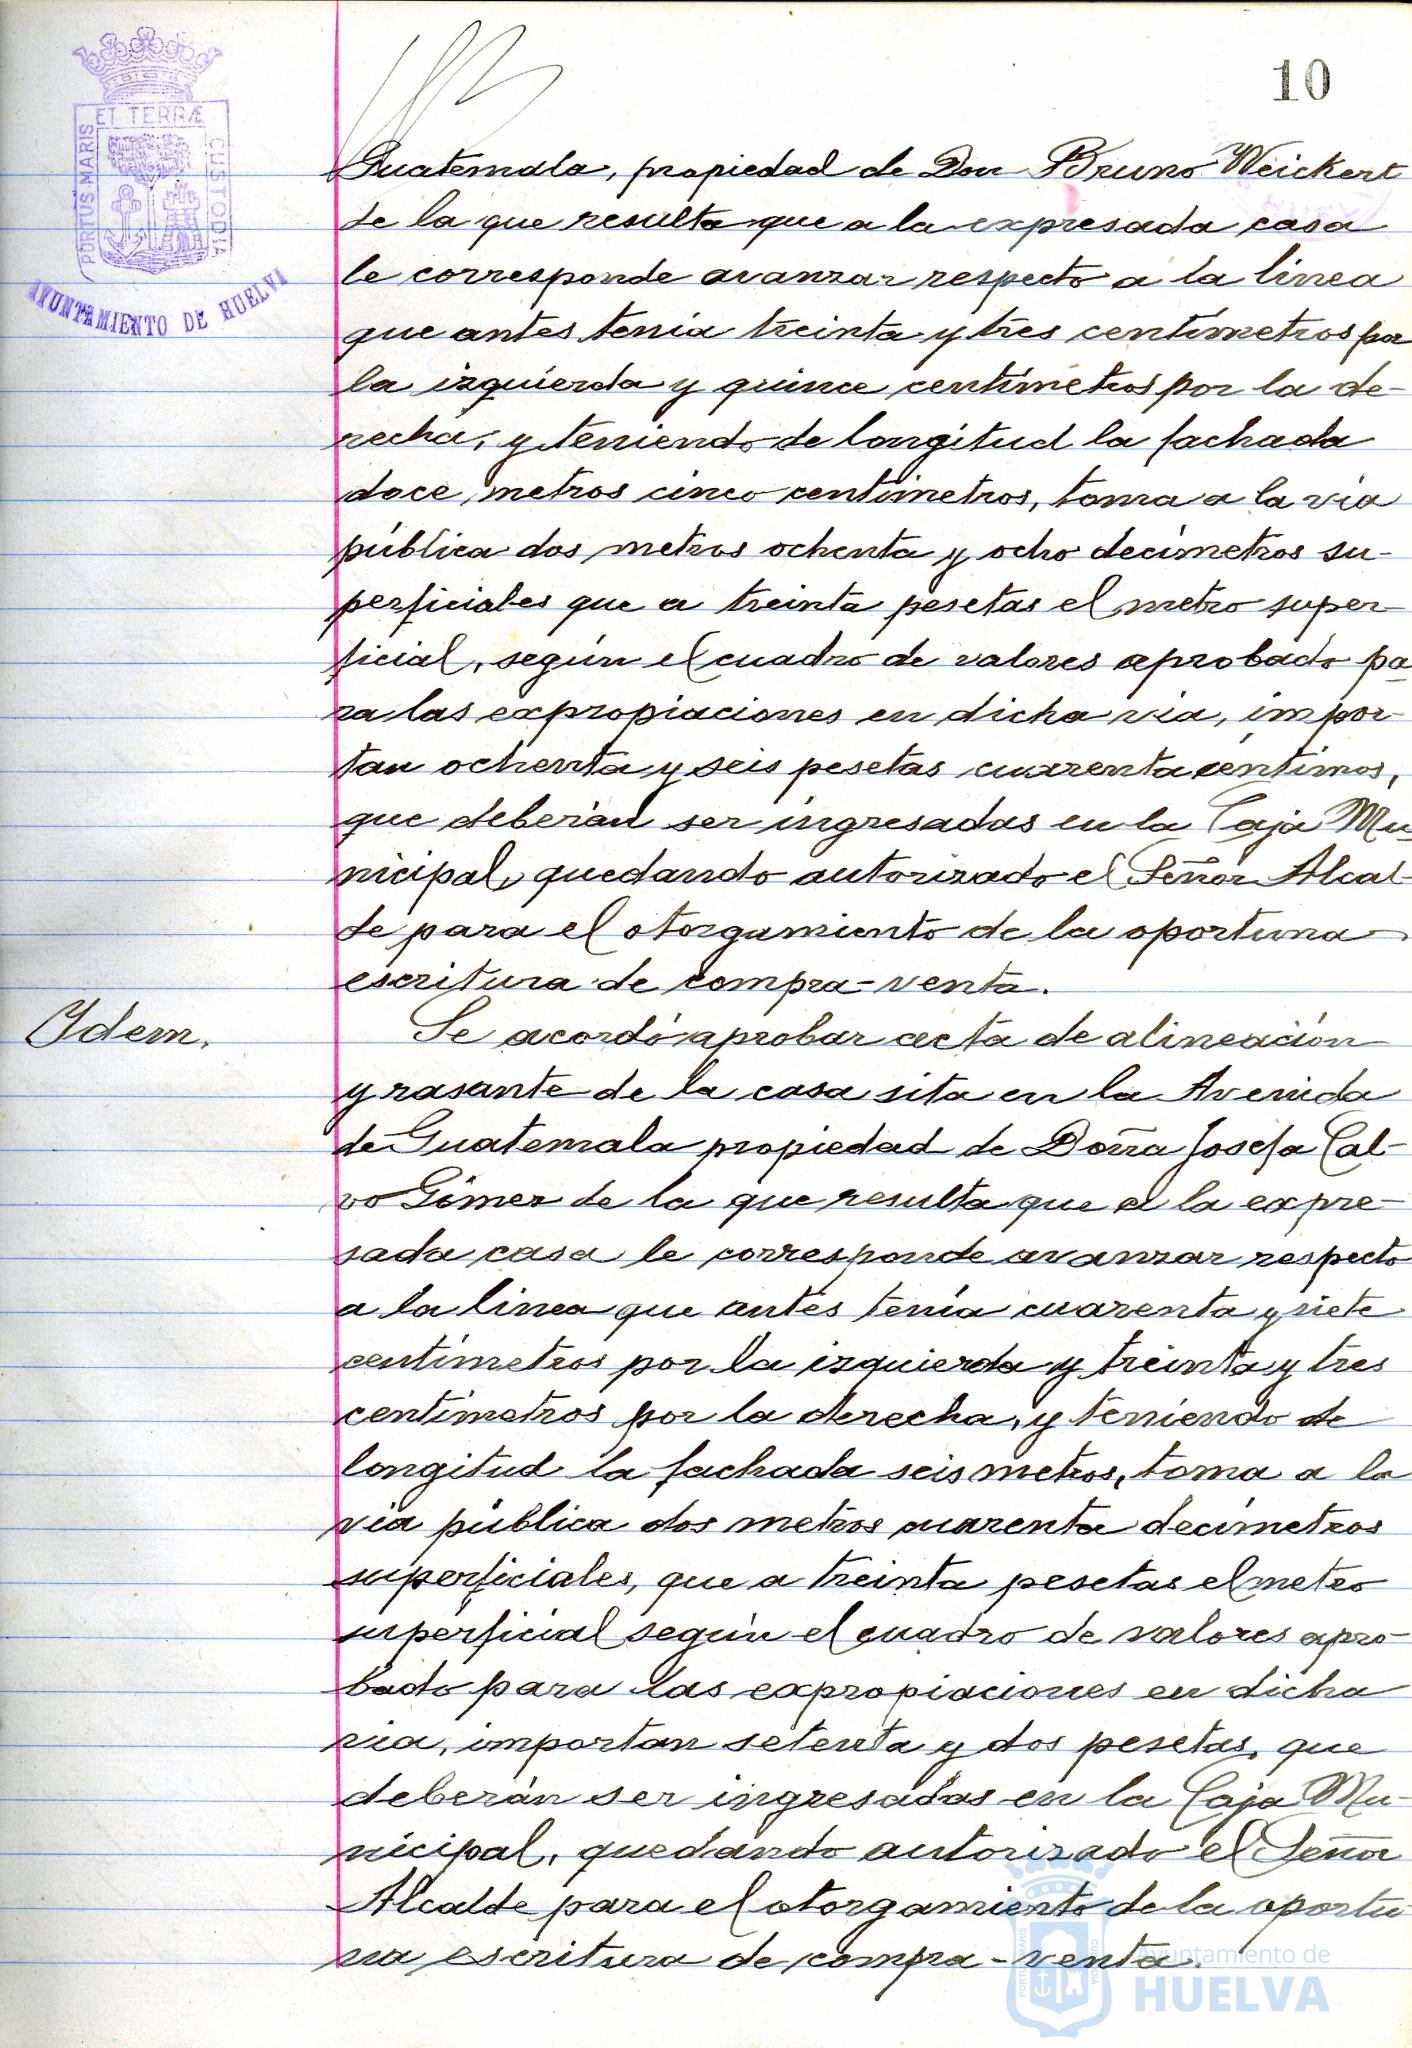 10
ET TERRÆ
PORTUS MARIS
CUSTODIA
AYUNTAMIENTO DE HUELVA
Guatemala, propiedad de Don Bruno Weickert
de la que resulta que a la expresada casa
le corresponde avanzar respecto a la linea
que antes tenía treinta y tres centímetros por
la izquierda y quince centímetros por la de-
recha, y teniendo de longitud la fachada
doce metros cinco centímetros, toma a la via
pública dos metros ochenta y ocho decímetros su-
perficiales que a treinta pesetas el metro super-
ficial, según el cuadro de valores aprobado pa-
ra las expropiaciones en dicha via, impor-
tan ochenta y seis pesetas cuarenta céntimos,
que deberán ser ingresadas en la Caja Mu-
nicipal, quedando autorizado el Señor Alcal-
de para el otorgamiento de la oportuna
escritura de compra-venta.
Ydem.
Se acordó aprobar acta de alineación
y rasante de la casa sita en la Avenida
de Guatemala propiedad de Doña Josefa Cal-
vo Gómez de la que resulta que a la expre-
sada casa le corresponde avanzar respecto
a la linea que antes tenía cuarenta y siete
centímetros por la izquierda y treinta y tres
centímetros por la derecha, y teniendo de
longitud la fachada seis metros, toma a la
via pública dos metros cuarenta decímetros
superficiales, que a treinta pesetas el metro
superficial según el cuadro de valores apro-
bado para las expropiaciones en dicha
via, importan setenta y dos pesetas, que
deberán ser ingresadas en la Caja Mu-
nicipal, quedando autorizado el Señor
Alcalde para el otorgamiento de la oportu-
na escritura de compra-venta.
Ayuntamiento de
HUELVA